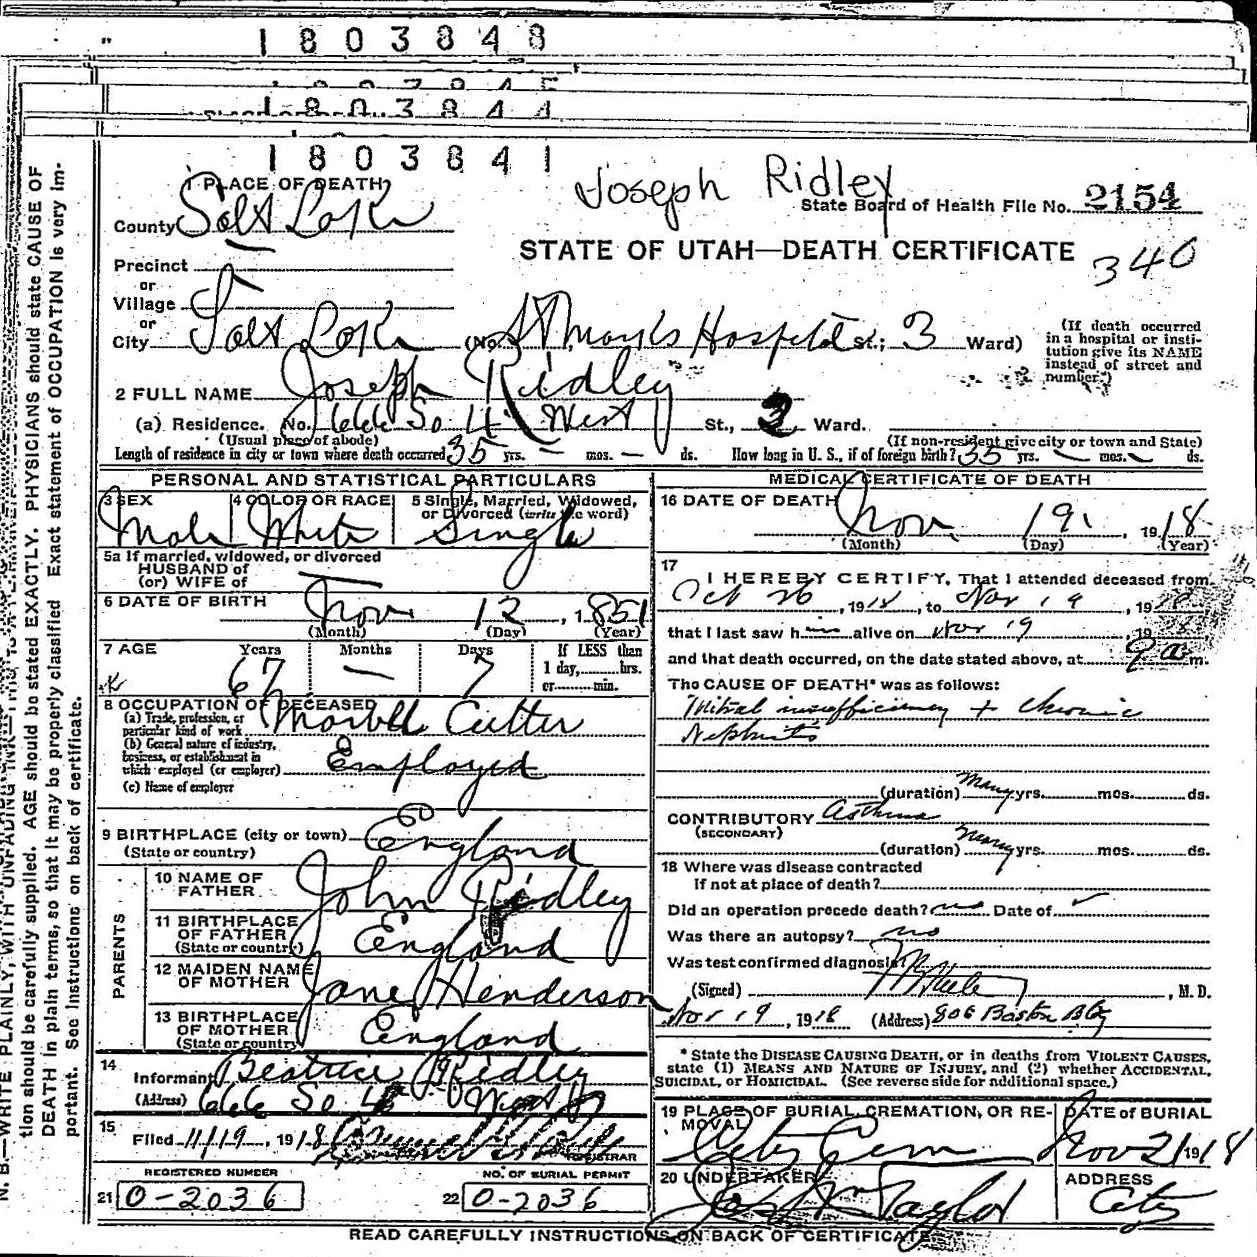 1803848
1803844
1803841
Joseph Ridley
State Board of Health File No. 2154
340
STATE OF UTAH—DEATH CERTIFICATE
1 PLACE OF DEATH
County Salt Lake
Precinct
or
Village
or
City Salt Lake (No. St Marks Hospital St.; 3 Ward)
(If death occurred in a hospital or institution give its NAME instead of street and number.)
2 FULL NAME Joseph Ridley
(a) Residence. No. 666 So 4 West St., 2 Ward.
(Usual place of abode) (If non-resident give city or town and State)
Length of residence in city or town where death occurred 35 yrs. — mos. — ds. How long in U. S., if of foreign birth? 35 yrs. — mos. — ds.
PERSONAL AND STATISTICAL PARTICULARS
3 SEX Male
4 COLOR OR RACE White
5 Single, Married, Widowed, or Divorced (write the word) Single
5a If married, widowed, or divorced
HUSBAND of
(or) WIFE of
6 DATE OF BIRTH Nov. 12, 1851
(Month) (Day) (Year)
7 AGE Years Months Days If LESS than
67 — 7 1 day, hrs.
or min.
8 OCCUPATION OF DECEASED
(a) Trade, profession, or particular kind of work Marble Cutter
(b) General nature of industry, business, or establishment in which employed (or employer) Employed
(c) Name of employer
9 BIRTHPLACE (city or town)
(State or country) England
PARENTS
10 NAME OF FATHER John Ridley
11 BIRTHPLACE OF FATHER (State or country) England
12 MAIDEN NAME OF MOTHER Jane Henderson
13 BIRTHPLACE OF MOTHER (State or country) England
14 Informant Beatrice Ridley
(Address) 666 So 4 West
15 Filed 11/19, 1918
REGISTRAR
REGISTERED NUMBER
21 0-2036
NO. OF BURIAL PERMIT
22 0-2036
MEDICAL CERTIFICATE OF DEATH
16 DATE OF DEATH Nov. 19, 1918
(Month) (Day) (Year)
17 I HEREBY CERTIFY, That I attended deceased from
Oct 26, 1918, to Nov 19, 1918
that I last saw him alive on Nov 19, 1918
and that death occurred, on the date stated above, at 9 a m.
The CAUSE OF DEATH* was as follows:
Mitral insufficiency + chronic
Nephritis
(duration) many yrs. mos. ds.
CONTRIBUTORY Asthma
(SECONDARY)
(duration) many yrs. mos. ds.
18 Where was disease contracted
If not at place of death?
Did an operation precede death? no Date of
Was there an autopsy? no
Was test confirmed diagnosis?
(Signed) , M. D.
Nov 19, 1918 (Address) 806 Boston Bldg
* State the DISEASE CAUSING DEATH, or in deaths from VIOLENT CAUSES, state (1) MEANS AND NATURE OF INJURY, and (2) whether ACCIDENTAL, SUICIDAL, or HOMICIDAL. (See reverse side for additional space.)
19 PLACE OF BURIAL, CREMATION, OR REMOVAL City Cem
DATE of BURIAL Nov 21 1918
20 UNDERTAKER Jos Wm Taylor
ADDRESS City
READ CAREFULLY INSTRUCTIONS ON BACK OF CERTIFICATE
tion should be carefully supplied. AGE should be stated EXACTLY. PHYSICIANS should state CAUSE OF
DEATH in plain terms, so that it may be properly classified. Exact statement of OCCUPATION is very im-
portant. See Instructions on back of certificate.